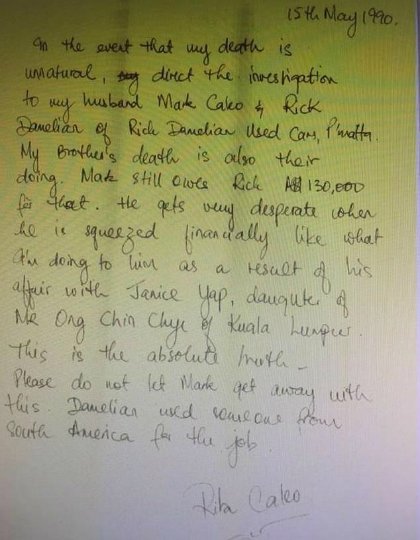 15th May 1990.
In the event that my death is
unnatural, direct the investigation
to my husband Mark Caleo & Rick
Damelian of Rick Damelian Used Cars, P'matta.
My Brother's death is also their
doing. Mark still owes Rick A$ 130,000
for that. He gets very desperate when
he is squeezed financially like what
I'm doing to him as a result of his
affair with Janice Yap, daughter of
Mr Ong Chin Chye of Kuala Lumpur.
This is the absolute truth -
Please do not let Mark get away with
this. Damelian used someone from
South America for the job.
Rita Caleo